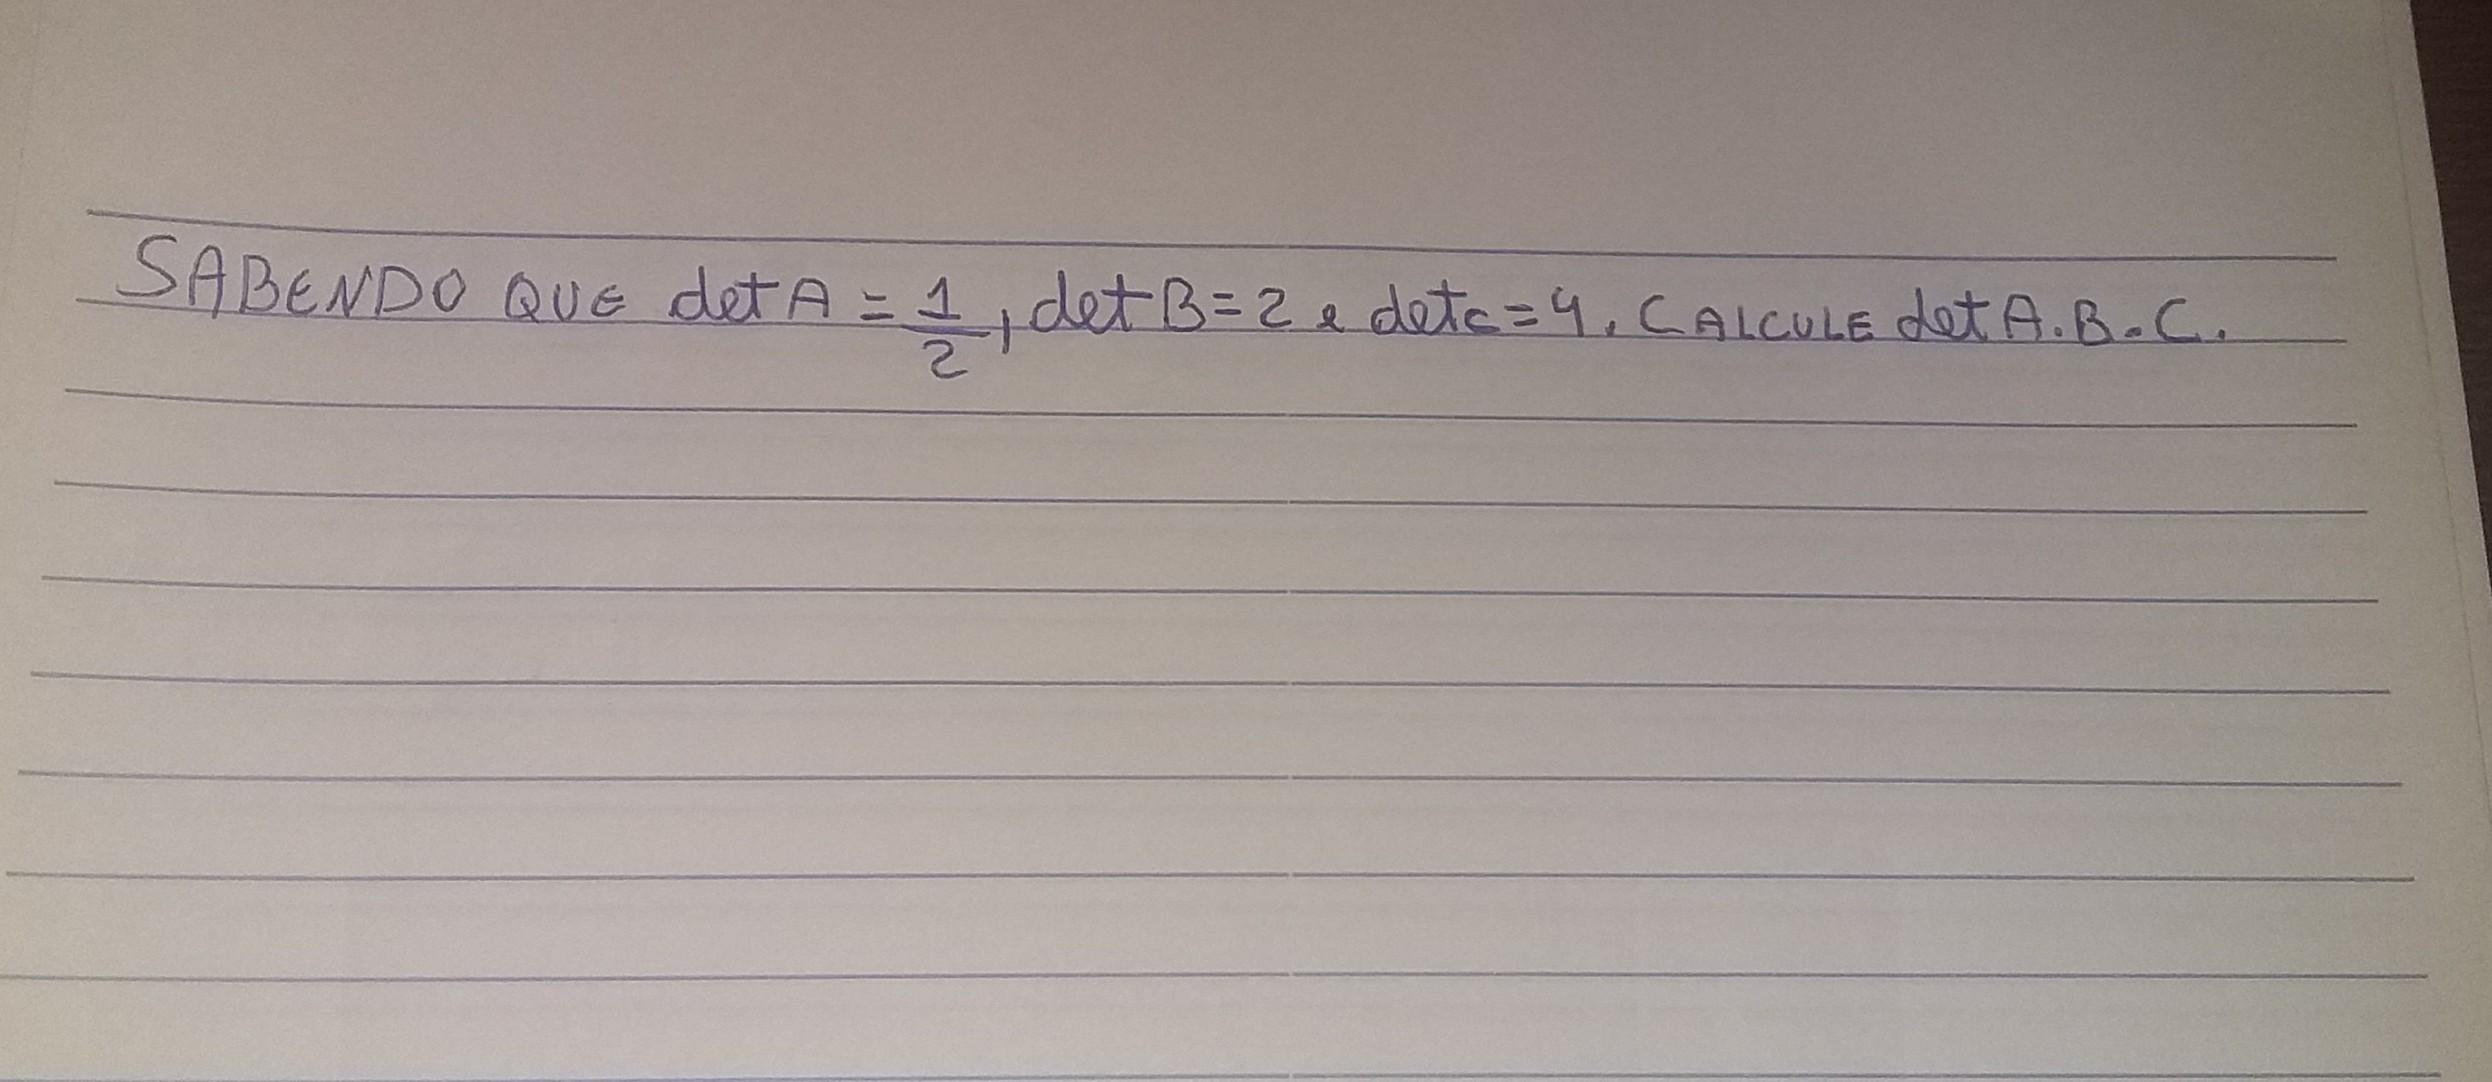 SABENDO QUE det A = 1/2, det B = 2 e det c = 4. CALCULE det A.B.C.